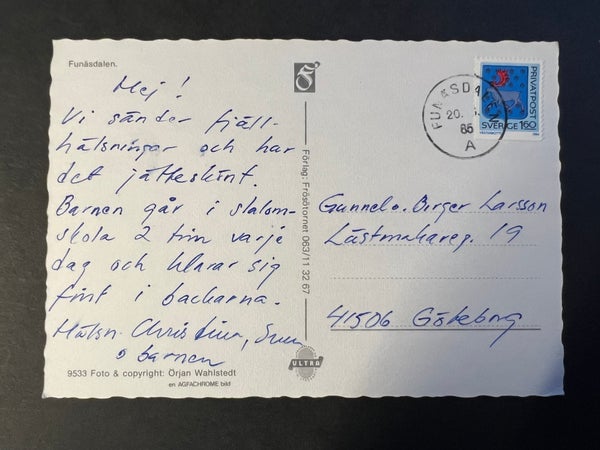 Funäsdalen.
Hej!
Vi sänder fjäll-
hälsningar och har
det jätteskönt.
Barnen går i slalom-
skola 2 tim varje
dag och klarar sig
fint i backarna.
Hälsn. Christina, Sven
o barnen
9533 Foto & copyright: Örjan Wahlstedt
en AGFACHROME bild
Förlag: Frösötornet 063/11 32 67
ULTRA
FUNÄSDALEN
20.
85
A
PRIVATPOST
SVERIGE 160
Gunnel o. Birger Larsson
Lästmakareg. 19
41506 Göteborg